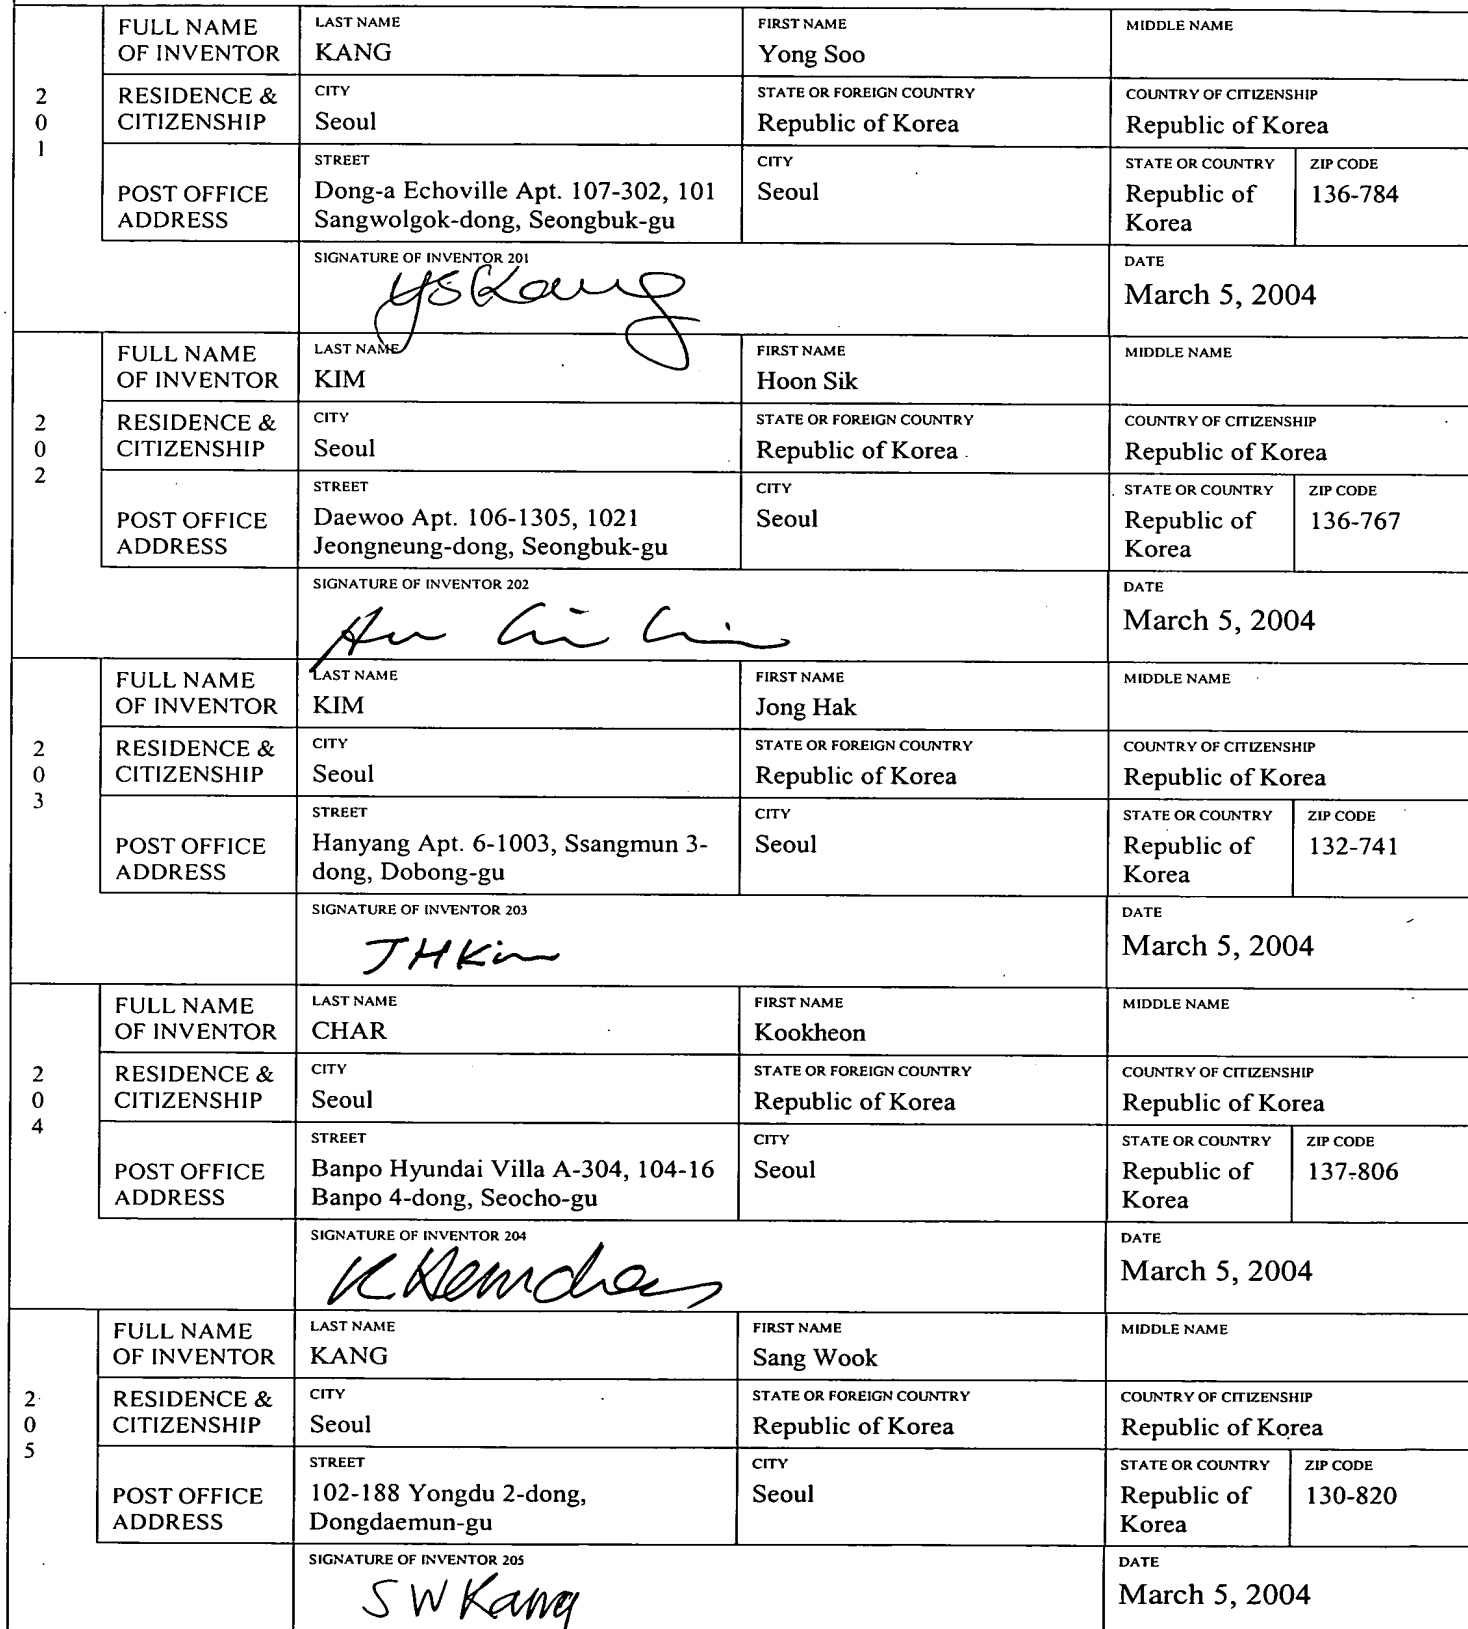 FULL NAME OF INVENTOR
LAST NAME
KANG
FIRST NAME
Yong Soo
MIDDLE NAME
201
RESIDENCE & CITIZENSHIP
CITY
Seoul
STATE OR FOREIGN COUNTRY
Republic of Korea
COUNTRY OF CITIZENSHIP
Republic of Korea
POST OFFICE ADDRESS
STREET
Dong-a Echoville Apt. 107-302, 101
Sangwolgok-dong, Seongbuk-gu
CITY
Seoul
STATE OR COUNTRY
Republic of
Korea
ZIP CODE
136-784
SIGNATURE OF INVENTOR 201
YSKang
DATE
March 5, 2004
FULL NAME OF INVENTOR
LAST NAME
KIM
FIRST NAME
Hoon Sik
MIDDLE NAME
202
RESIDENCE & CITIZENSHIP
CITY
Seoul
STATE OR FOREIGN COUNTRY
Republic of Korea
COUNTRY OF CITIZENSHIP
Republic of Korea
POST OFFICE ADDRESS
STREET
Daewoo Apt. 106-1305, 1021
Jeongneung-dong, Seongbuk-gu
CITY
Seoul
STATE OR COUNTRY
Republic of
Korea
ZIP CODE
136-767
SIGNATURE OF INVENTOR 202
DATE
March 5, 2004
FULL NAME OF INVENTOR
LAST NAME
KIM
FIRST NAME
Jong Hak
MIDDLE NAME
203
RESIDENCE & CITIZENSHIP
CITY
Seoul
STATE OR FOREIGN COUNTRY
Republic of Korea
COUNTRY OF CITIZENSHIP
Republic of Korea
POST OFFICE ADDRESS
STREET
Hanyang Apt. 6-1003, Ssangmun 3-
dong, Dobong-gu
CITY
Seoul
STATE OR COUNTRY
Republic of
Korea
ZIP CODE
132-741
SIGNATURE OF INVENTOR 203
JHKim
DATE
March 5, 2004
FULL NAME OF INVENTOR
LAST NAME
CHAR
FIRST NAME
Kookheon
MIDDLE NAME
204
RESIDENCE & CITIZENSHIP
CITY
Seoul
STATE OR FOREIGN COUNTRY
Republic of Korea
COUNTRY OF CITIZENSHIP
Republic of Korea
POST OFFICE ADDRESS
STREET
Banpo Hyundai Villa A-304, 104-16
Banpo 4-dong, Seocho-gu
CITY
Seoul
STATE OR COUNTRY
Republic of
Korea
ZIP CODE
137-806
SIGNATURE OF INVENTOR 204
DATE
March 5, 2004
FULL NAME OF INVENTOR
LAST NAME
KANG
FIRST NAME
Sang Wook
MIDDLE NAME
205
RESIDENCE & CITIZENSHIP
CITY
Seoul
STATE OR FOREIGN COUNTRY
Republic of Korea
COUNTRY OF CITIZENSHIP
Republic of Korea
POST OFFICE ADDRESS
STREET
102-188 Yongdu 2-dong,
Dongdaemun-gu
CITY
Seoul
STATE OR COUNTRY
Republic of
Korea
ZIP CODE
130-820
SIGNATURE OF INVENTOR 205
SWKang
DATE
March 5, 2004